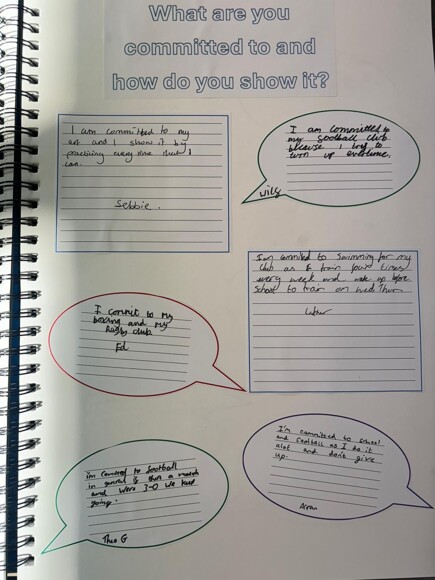 What are you
committed to and
how do you show it?
I am committed to my
art and I show it by
practising every time that I
can.
Sebbie.
I am committed to
my football club
because I try to
turn up everytime.
Wilf
I am commited to Swimming for my
Club as I train four times
every week and wake up before
School to train on Wed Thur
I commit to my
boxing and my
Rugby club.
Ed
I'm committed to school
and football as I do it
alot and don't give
up.
i'm commited to football
in general if then a match
and were 3-0 we keep
going.
Theo G